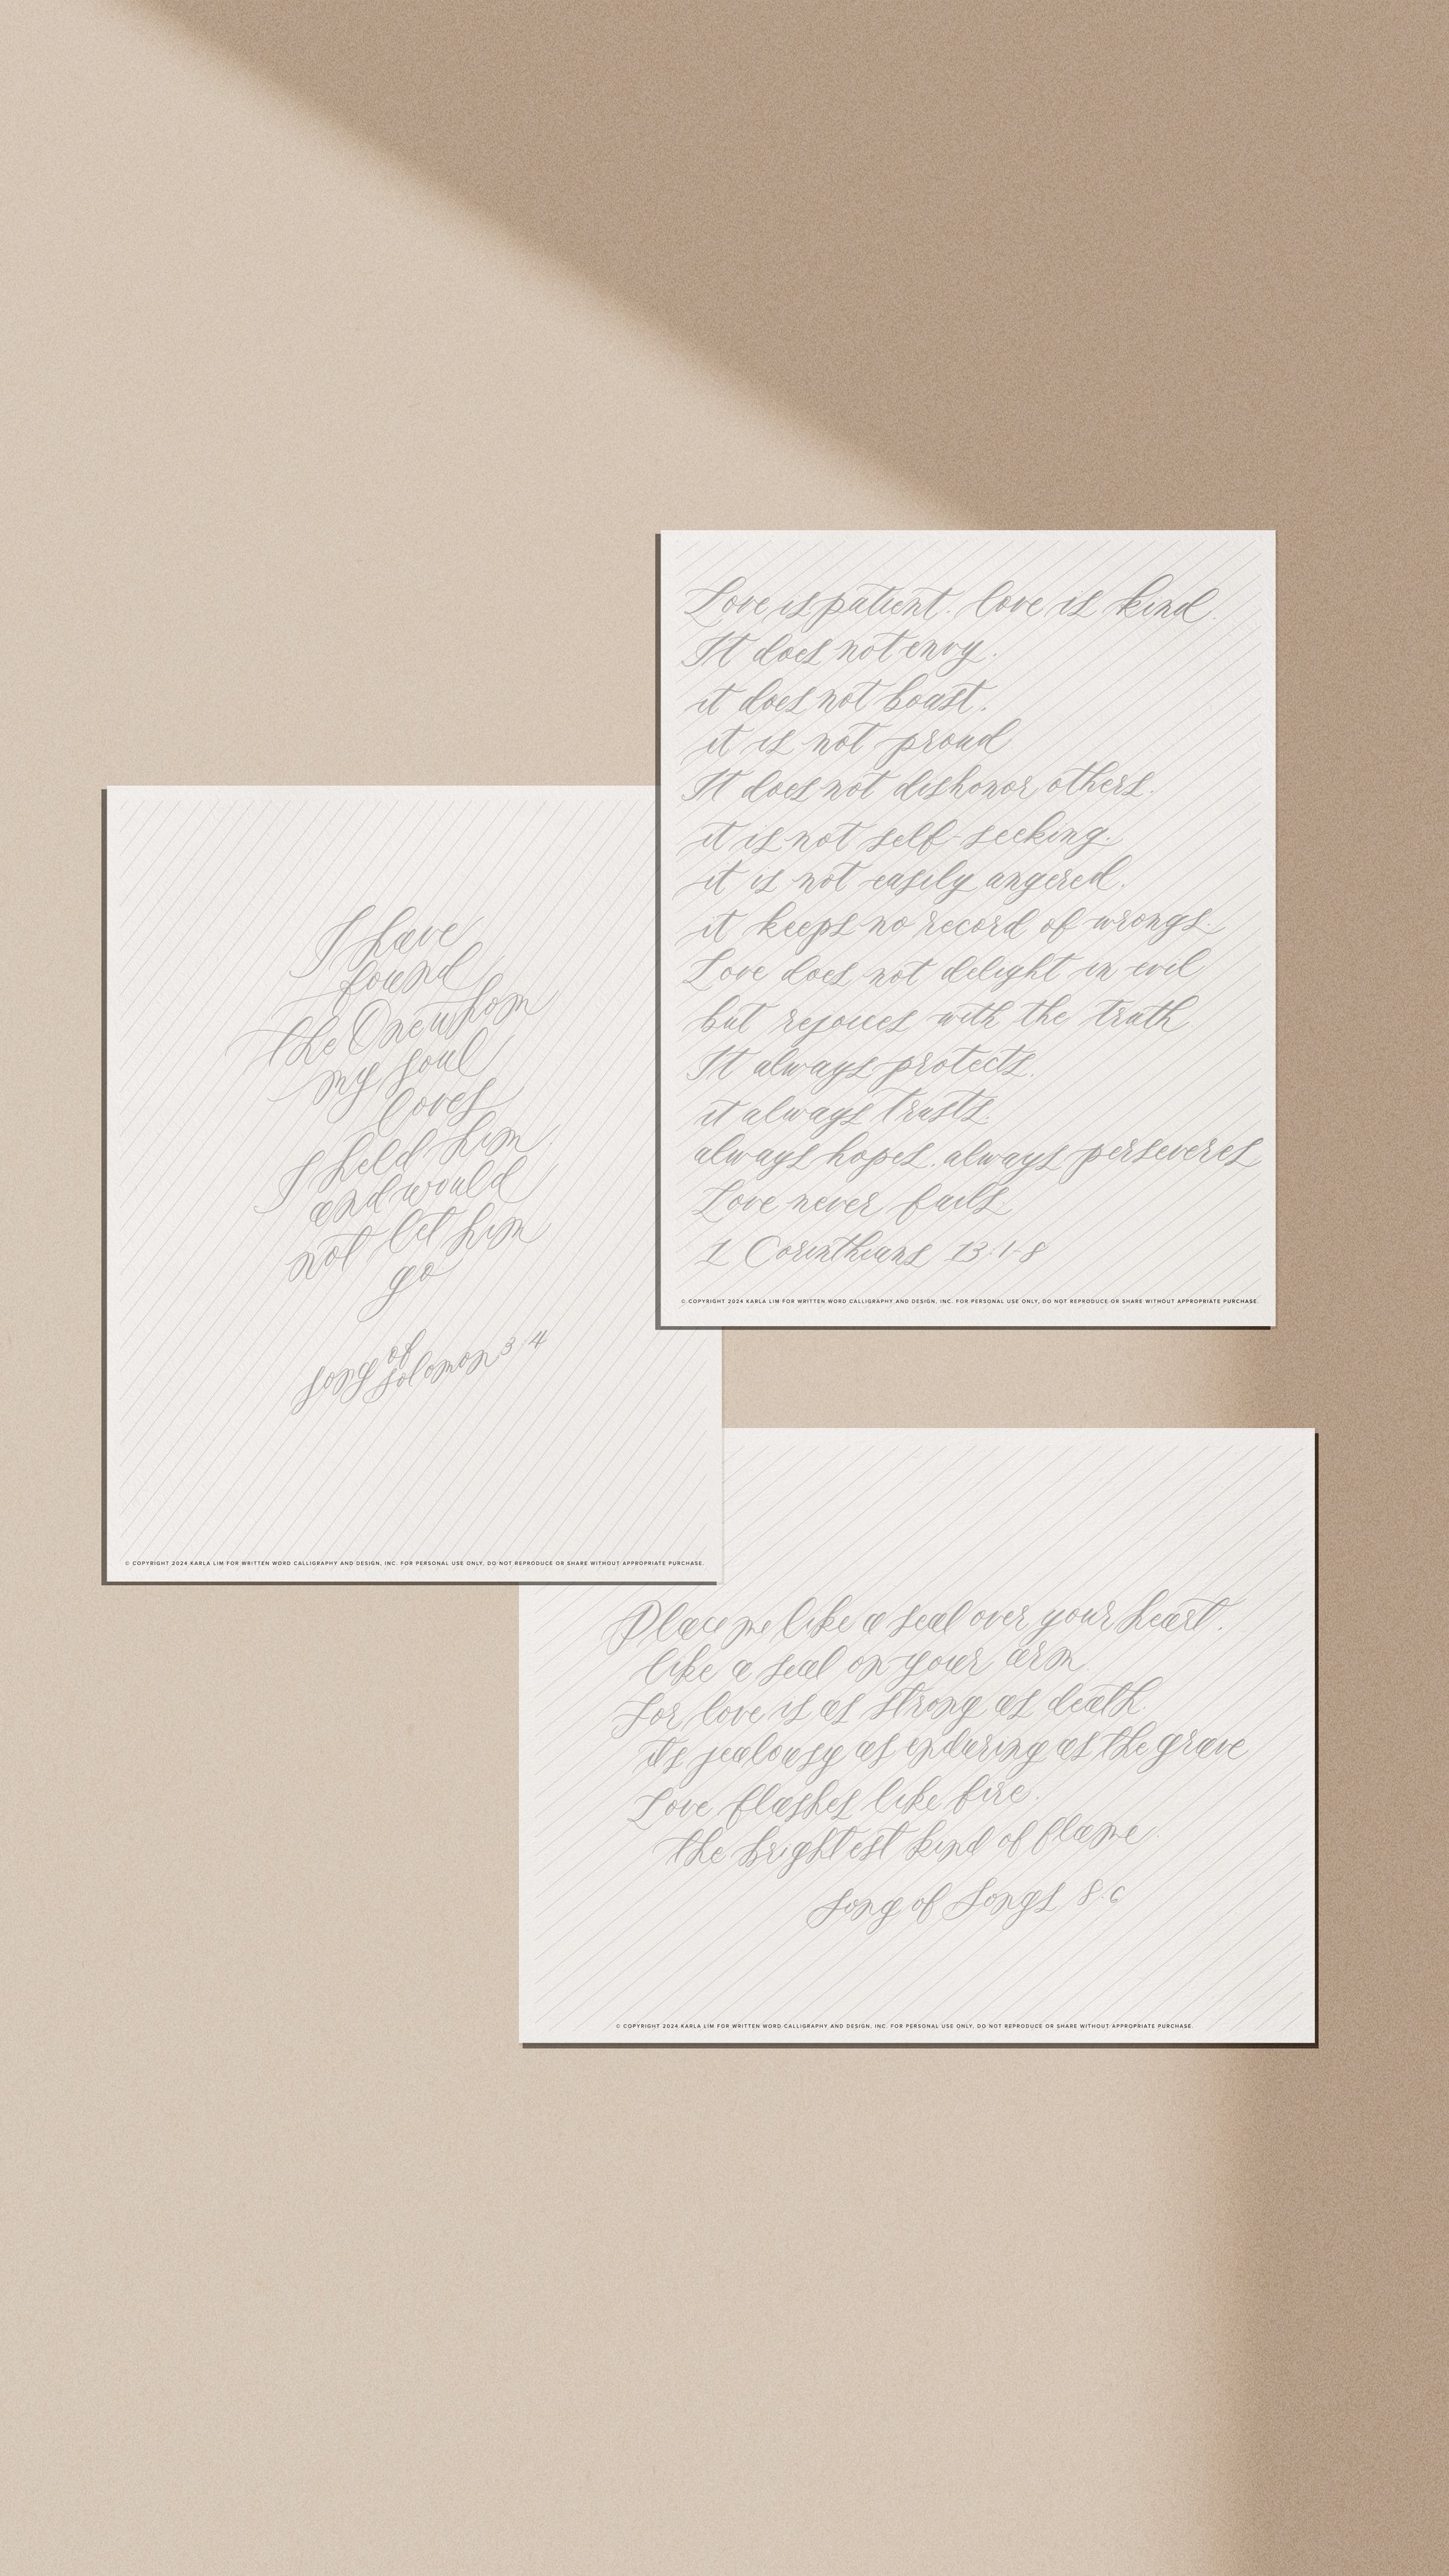 Love is patient. love is kind.
It does not envy.
it does not boast.
it is not proud
It does not dishonor others.
it is not self-seeking.
it is not easily angered.
it keeps no record of wrongs.
Love does not delight in evil
but rejoices with the truth.
It always protects.
it always trusts.
always hopes. always perseveres
Love never fails
1 Corinthians 13:1-8
© COPYRIGHT 2024 KARLA LIM FOR WRITTEN WORD CALLIGRAPHY AND DESIGN, INC. FOR PERSONAL USE ONLY, DO NOT REPRODUCE OR SHARE WITHOUT APPROPRIATE PURCHASE.
I have
found
the One whom
my soul
loves
I held him
and would
not let him
go
song of
solomon 3:4
© COPYRIGHT 2024 KARLA LIM FOR WRITTEN WORD CALLIGRAPHY AND DESIGN, INC. FOR PERSONAL USE ONLY, DO NOT REPRODUCE OR SHARE WITHOUT APPROPRIATE PURCHASE.
Place me like a seal over your heart.
like a seal on your arm
For love is as strong as death.
it's jealousy as enduring as the grave
Love flashes like fire.
the brightest kind of flame
Song of Songs 8:6
© COPYRIGHT 2024 KARLA LIM FOR WRITTEN WORD CALLIGRAPHY AND DESIGN, INC. FOR PERSONAL USE ONLY, DO NOT REPRODUCE OR SHARE WITHOUT APPROPRIATE PURCHASE.